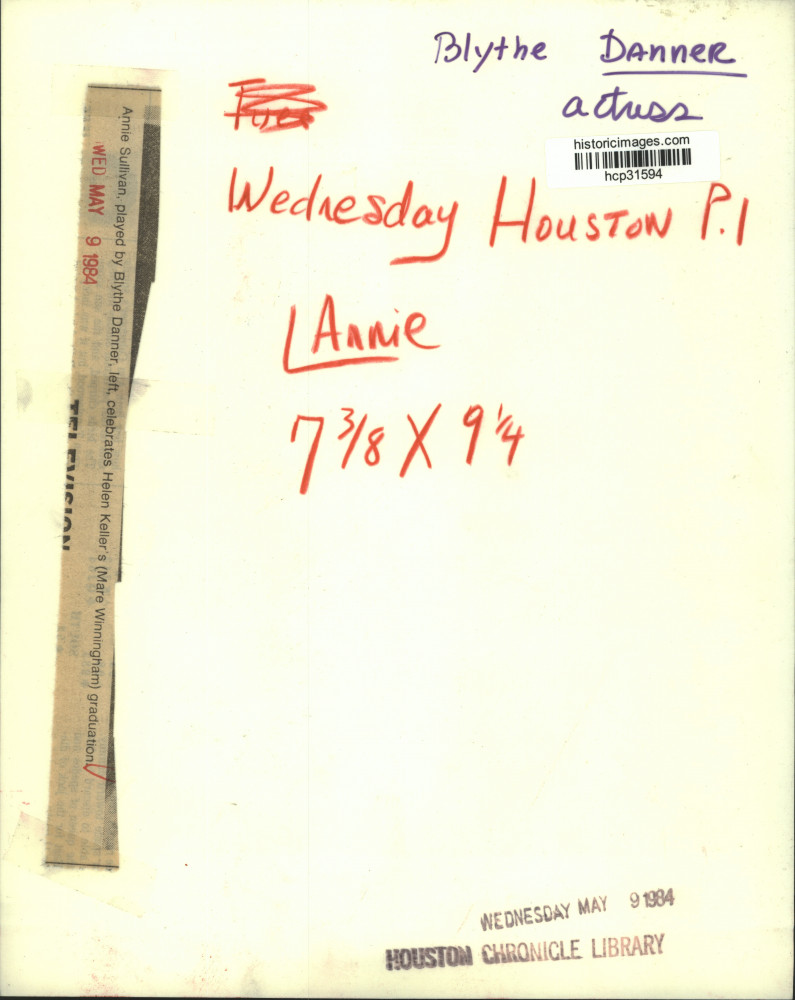 Blythe Danner
actress
historicimages.com
hcp31594
Wednesday Houston P.1
Annie
7 3/8 X 9 1/4
Annie Sullivan, played by Blythe Danner, left, celebrates Helen Keller's (Mare Winningham) graduation.
WED MAY 9 1984
TELEVISION
WEDNESDAY MAY 9 1984
HOUSTON CHRONICLE LIBRARY